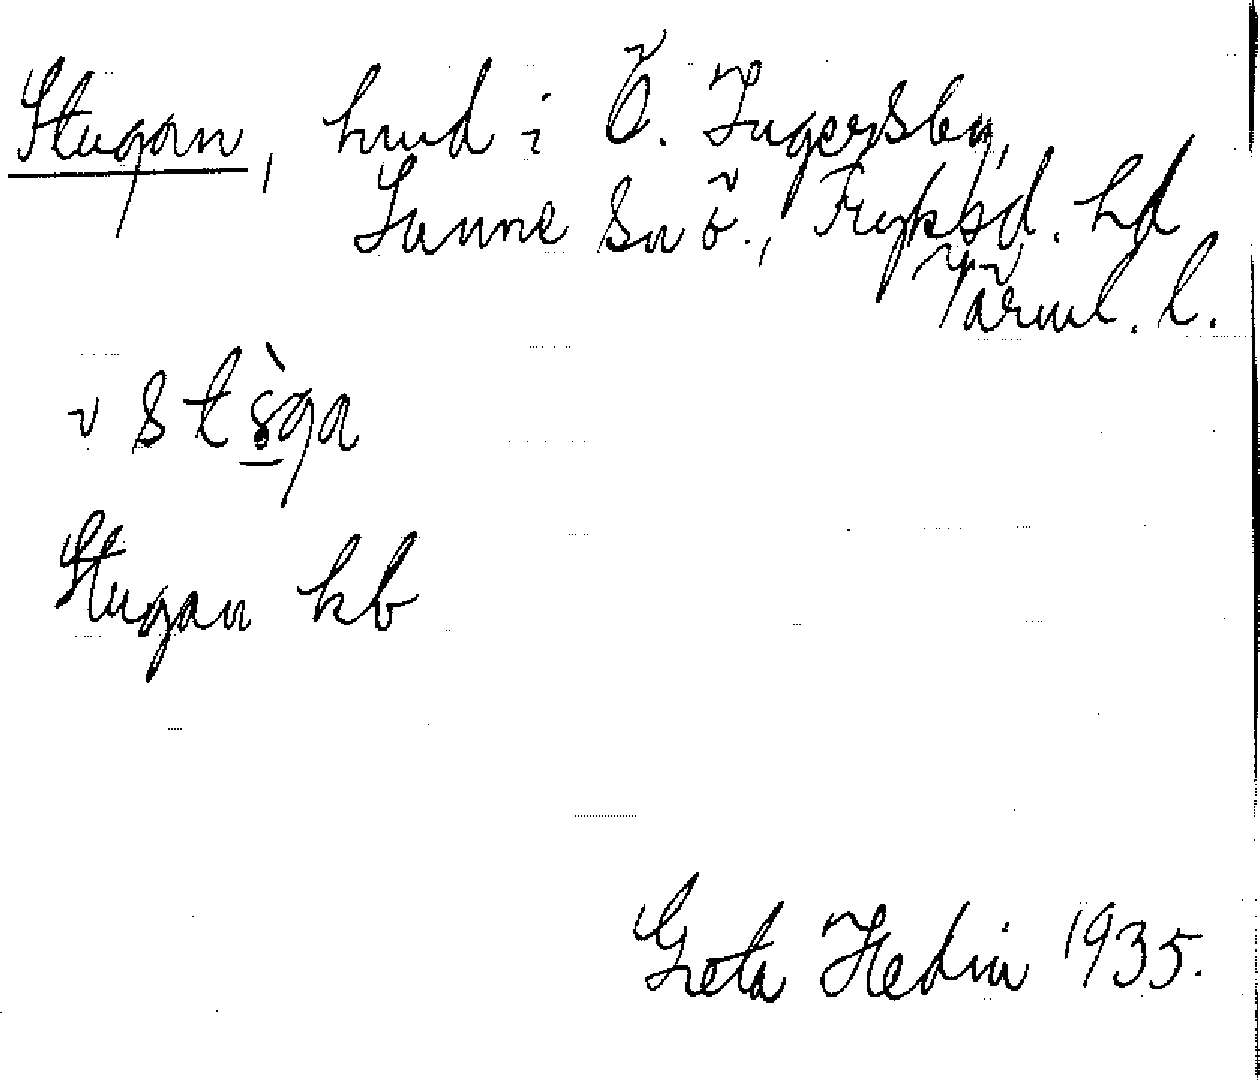 Stugan, hmd i Ö. Ingersby,
Sunne sn ö., Fryksd. hd
Värml. l.
Stugan kb
Greta Hedin 1935.